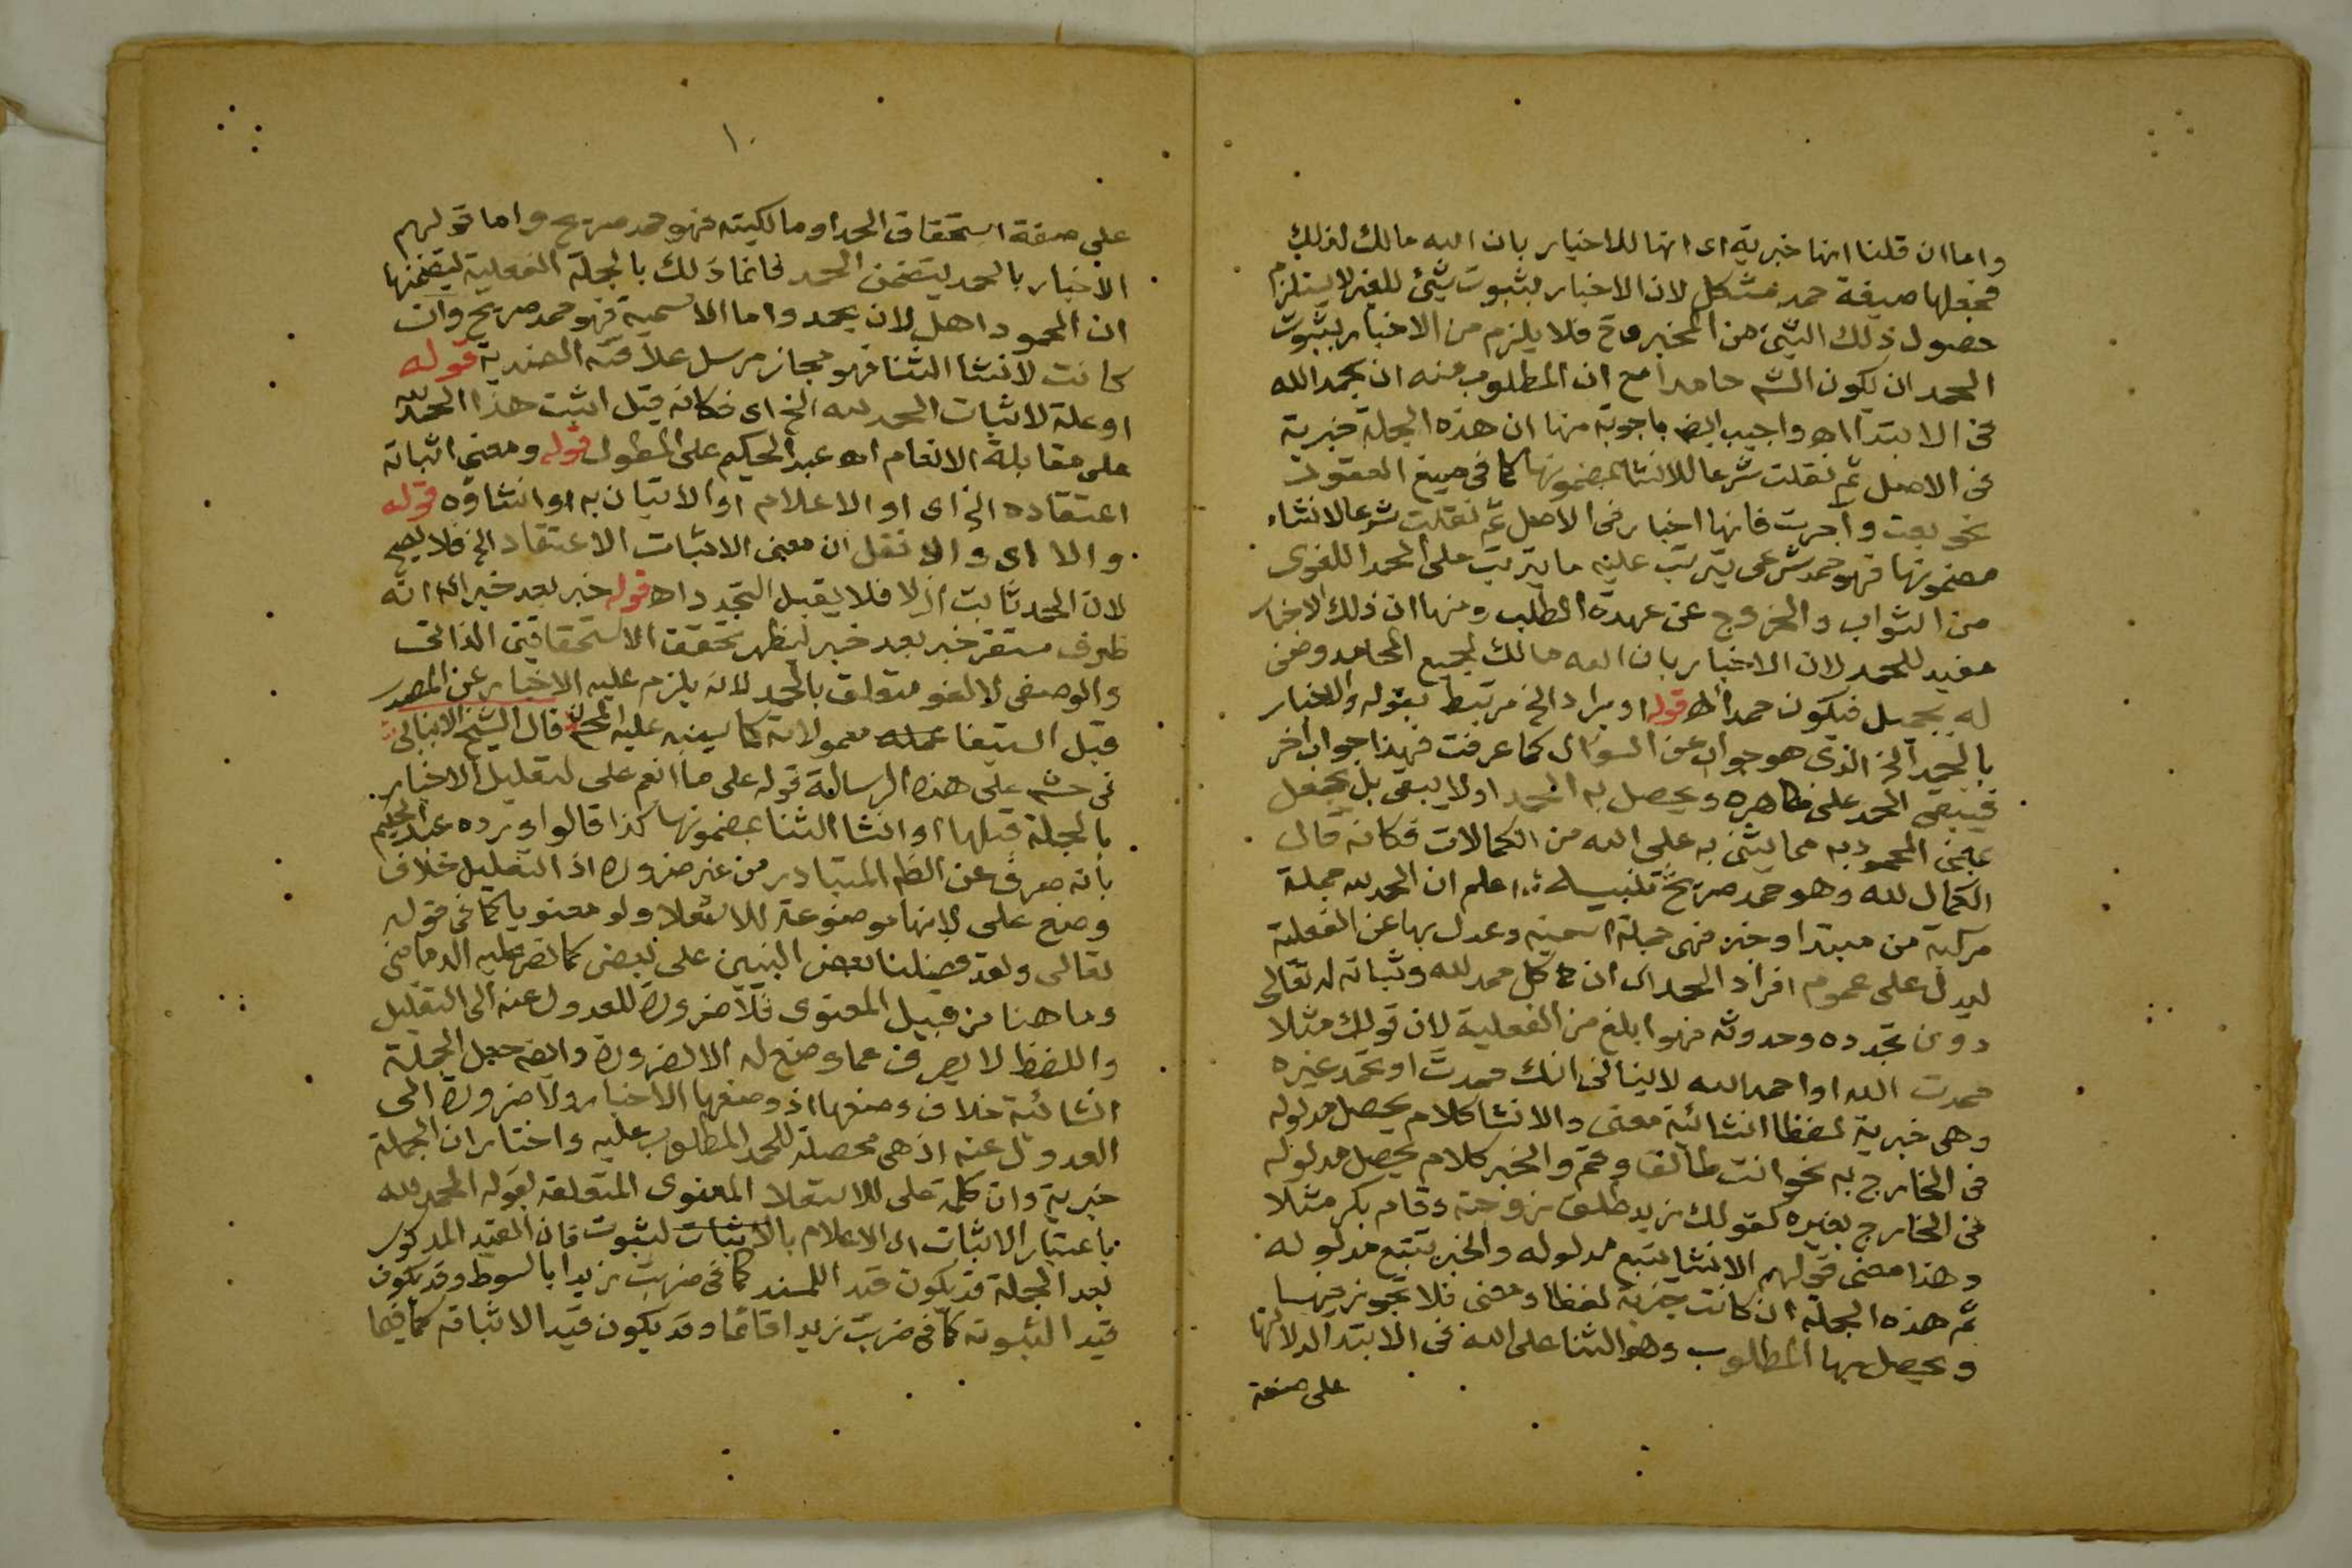 واما ان قلنا انها خبرية اى انها للاخبار بان الله مالك لذلك
فجعلها صيغة حمد مشكل لان الاخبار بثبوت شئ للغير لا يستلزم
حصول ذلك الشئ من المخبر وح فلا يلزم من الاخبار بثبوت
الحمد ان يكون الشـ حامدا مع ان المطلوب منه ان يحمد الله
فى الابتدا اه واجيب ايضـ باجوبة منها ان هذه الجملة خبرية
فى الاصل ثم نقلت شرعا للانشا بمضمونها كما فى صيغ العقود
نحو بعت واجرت فانها اخبار فى الاصل ثم نقلت شرعا لانشاء
مضمونها فهو حمد شرعى يترتب عليه ما يترتب على الحمد اللغوى
من الثواب والخروج عن عهدة الطلب ومنها ان ذلك الاخبار
مفيد للحمد لان الاخبار بان الله مالك لجميع المحامد وصف
له بجميل فيكون حمدا اه قوله او يراد الخ مرتبط بقوله والاخبار
بالحمد الخ الذى هو جواب عن السوال كما عرفت فهذا جواب اخر
فيبقى الحمد على ظاهره ويحصل به الحمد او لا يبقى بل يجعل
بمعنى المحمود به مما يثنى به على الله من الكمالات فكانه قال
الكمال لله وهو حمد صريح تنبيه اعلم ان الحمد لله جملة
مركبة من مبتدا وخبر فهى جملة اسمية وعدل بها عن الفعلية
ليدل على عموم افراد الحمد اى ان كل حمد لله وثباته له تعالى
دون تجدده وحدوثه فهو ابلغ من الفعلية لان قولك مثلا
حمدت الله او احمد الله لا ينافى انك حمدت او تحمد غيره
وهى خبرية لفظا انشائية معنى والانشا كلام يحصل مدلوله
فى الخارج به نحو انت طالق وقم والخبر كلام يحصل مدلوله
فى الخارج بغيره كقولك زيد طلق زوجته وقام بكر مثلا
وهذا معنى قولهم الانشا يتبع مدلوله والخبر يتبع مدلوله
ثم هذه الجملة ان كانت خبرية لفظا ومعنى فلا تجوز فيها
ويحصل بها المطلوب وهو الثنا على الله فى الابتدا لدلالتها
على صفة
١٠
على صفة استحقاق الحمد او مالكيته فهو حمد صريح واما قولهم
الاخبار بالحمد يتضمن الحمد فانما ذلك بالجملة الفعلية لتضمنها
ان المحمود اهل لان يحمد واما الاسمية فهو حمد صريح وان
كانت لانشا الثنا فهو مجاز مرسل علاقته الضدية قوله
او علة لاثبات الحمد لله الخ اى فكانه قيل اثبت هذا الحمد لله
على مقابلة الانعام اه عبد الحكيم على المطول قوله ومعنى اثباته
اعتقاده الخ اى او الاعلام او الاتيان به او انشاؤه قوله
والا اى والا نقل ان معنى الاثبات الاعتقاد الخ فلا يصح
لان الحمد ثابت ازلا فلا يقبل التجدد اه قوله خبر بعد خبر اى انه
ظرف مستقر خبر بعد خبر ليظهر تحقق الاستحقاقين الذاتى
والوصفى لا لغو متعلق بالحمد لانه يلزم عليه الاخبار عن المصدر
قبل استيفا عمله معمولاته كما سينبه عليه المحشى قال الشيخ الانبابى
فى حشـ على هذه الرسالة قوله على ما انعم على لتعليل الاخبار
بالجملة قبلها او انشا الثنا بمضمونها كذا قالوا ورده عبد الحكيم
بانه صرف عن الظـ المتبادر من غير ضرورة اذ التعليل خلاف
وضع على لانها موضوعة للاستعلا ولو معنويا كما فى قوله
تعالى ولقد فضلنا بعض النبيين على بعض كما نص عليه الدمامينى
وما هنا من قبيل المعنوى فلا ضرورة للعدول عنه الى التعليل
واللفظ لا يصرف عما وضع له الا لضرورة وايضـ جعل الجملة
انشائية خلاف وضعها اذ وضعها الاخبار ولا ضرورة الى
العدول عنه اذ هى محصلة للحمد المطلوب عليه واختار ان الجملة
خبرية وان كلمة على للاستعلا المعنوى المتعلقة بقوله الحمد لله
باعتبار الاثبات اى الاعلام بالاثبات لثبوت فان القيد المذكور
بعد الجملة قد يكون قيدا للمسند كما فى ضربت زيدا بالسوط وقد يكون
قيدا لثبوته كما فى ضربت زيدا قائما وقد يكون قيدا لاثباته كما فيما